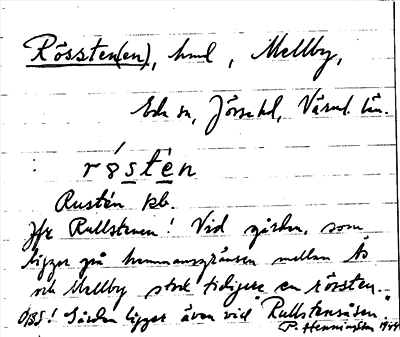 Rössten(en), hmd, Mellby,
Eds sn, Jösse hd, Värml. län.
røsten
Rustén kb.
Jfr Rullstenen! Vid gården, som
ligger på hemmansgränsen mellan Ås
och Mellby stod tidigare en rösten.
OBS! Gården ligger även vid "Rullstensåsen."
P. Henningsten 1944